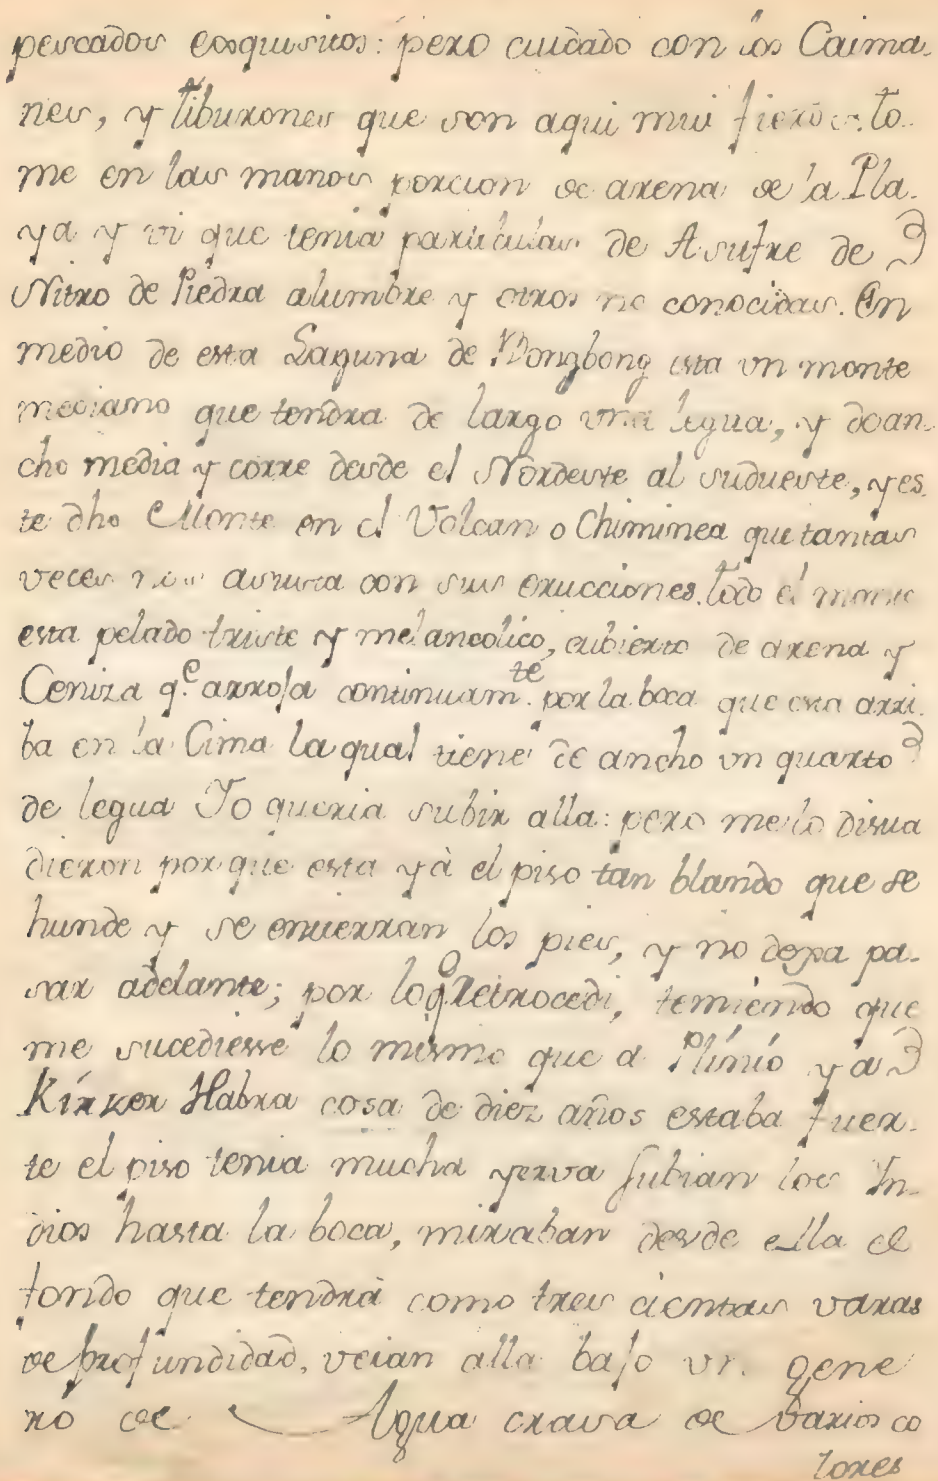 pescados exquisitos: pero cuidado con los Caima-
nes, y tiburones que son aqui mui fieros. to-
me en las manos porcion de arena de la Pla-
ya y vi que tenia particulas de Asufre de
Nitro de Piedra alumbre y otros no conocidas. En
medio de esta Laguna de Bongbong esta vn monte
mediano que tendra de largo vna legua, y de an-
cho media y corre desde el Nordeste al sudueste, y es
te dho Monte en el Volcan o Chiminea que tantas
veces nos asusta con sus erucciones. todo el monte
esta pelado triste y melancolico, cubierto de arena y
Ceniza q.e arroja continuam.te por la boca que esta arri-
ba en la Cima la qual tiene de ancho vn quarto
de legua Yo queria subir alla: pero me lo disua
dieron por que esta yà el piso tan blando que se
hunde y se entierran los pies, y no dexa pa-
sar adelante; por lo q.e Retrocedi, temiendo que
me sucediesse lo mismo que a Plinio y a
Kirker Habra cosa de diez años estaba fuer-
te el piso tenia mucha yerva subian los In-
dios hasta la boca, miraban desde ella el
fondo que tendrà como tres cientas varas
de profundidad, veian alla bajo vn gene
ro de Agua crasa de varios co
lores